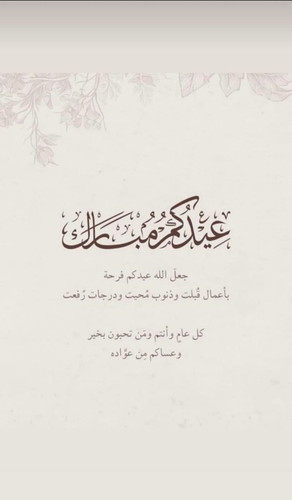 عيدكم مبارك
جعلَ الله عيدكم فرحة
بأعمال قُبلت وذنوب مُحيت ودرجات رُفعت
كل عامٍ وأنتم ومَن تحبون بخير
وعساكم مِن عوَّاده